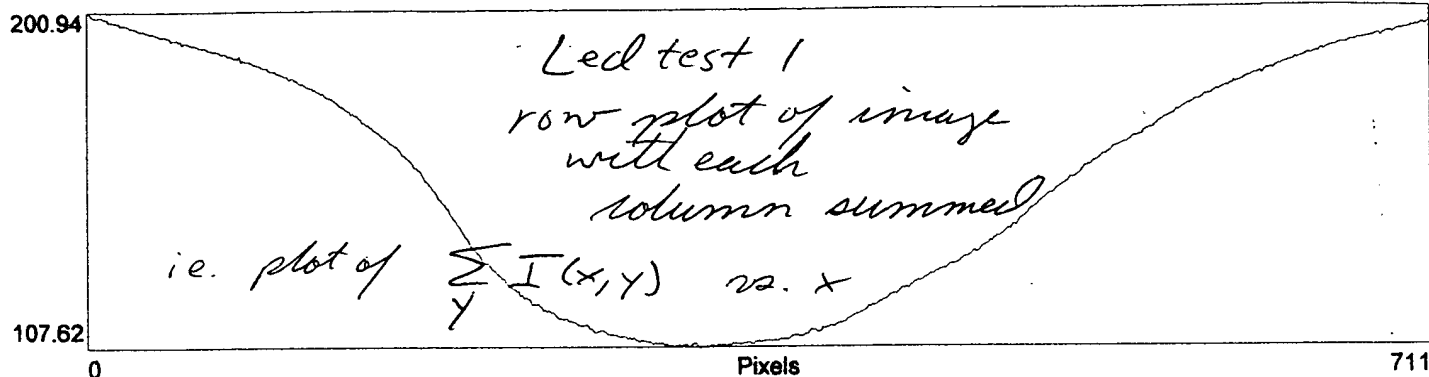 200.94
Led test 1
row plot of image
with each
column summed
i.e. plot of ∑_y I(x,y) vs. x
107.62
0 Pixels 711